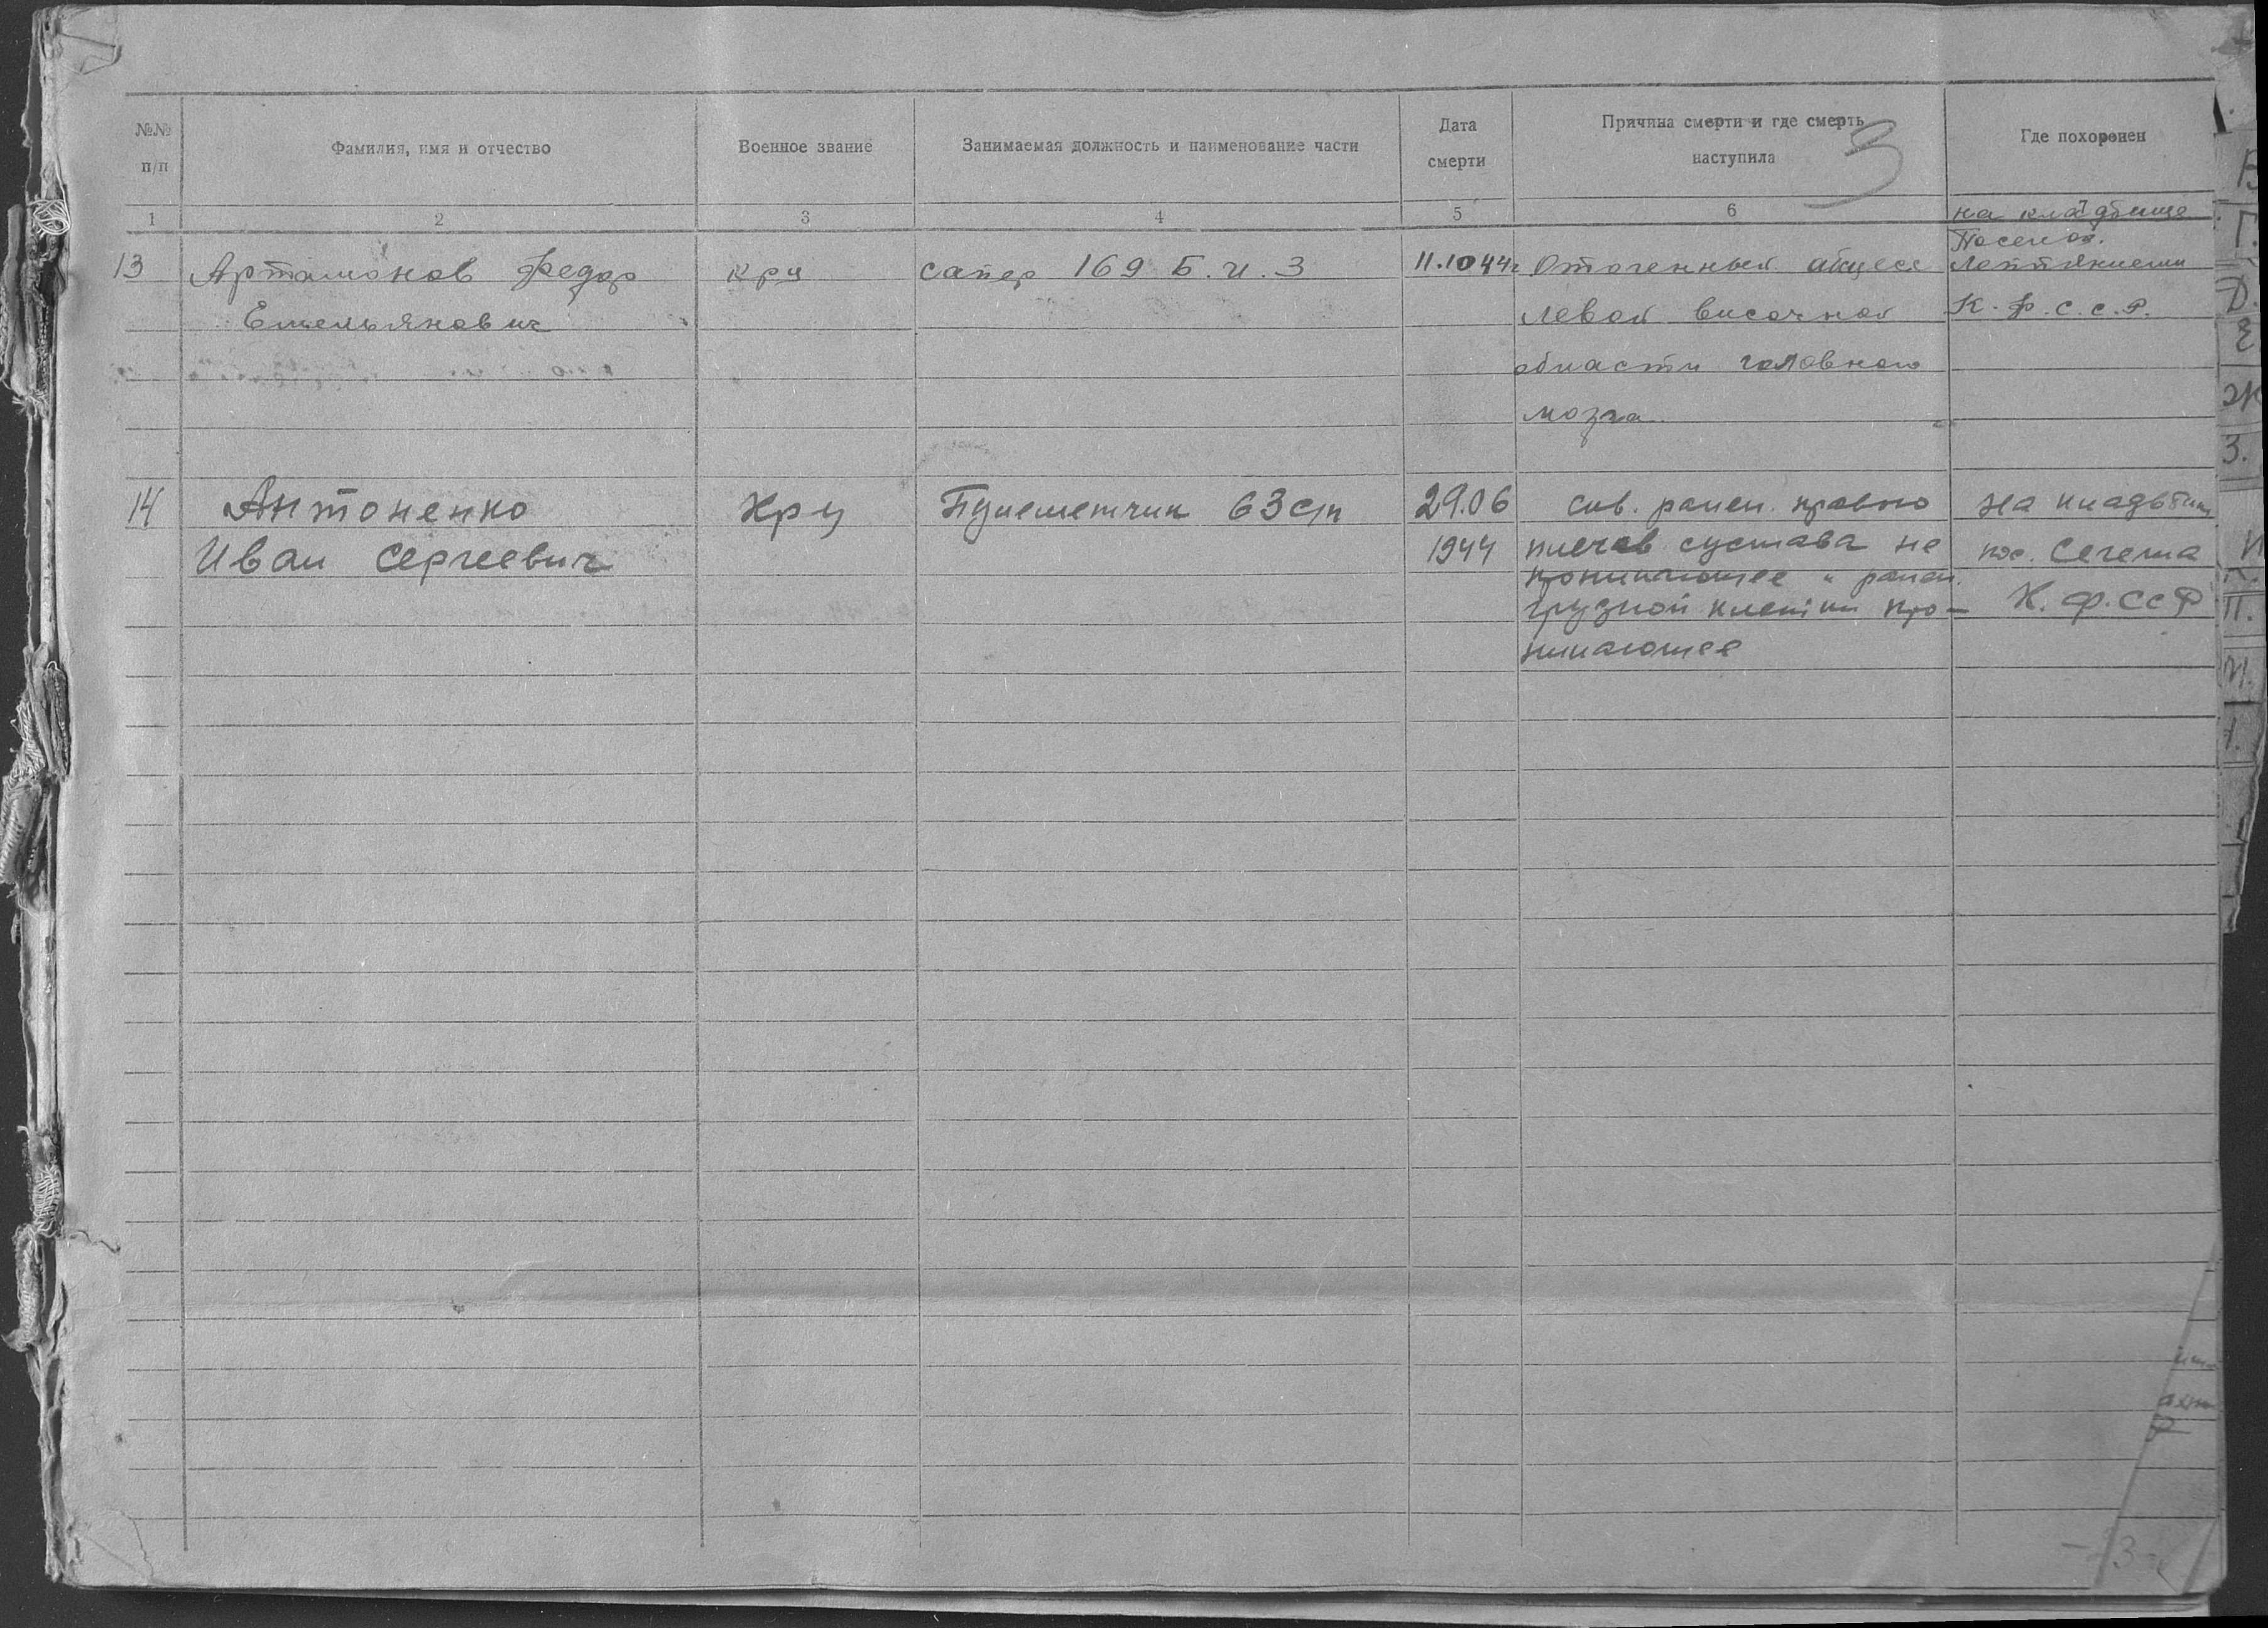 3
№№ п/п
Фамилия, имя и отчество
Военное звание
Занимаемая должность и наименование части
Дата смерти
Причина смерти и где смерть наступила
Где похоронен
1 2 3 4 5 6 7
на кладбище
Поселок.
13 Артамонов Федор кр-ц сапер 169 Б.И.З 11.10 44г Отогенный абцесс Леппясиеми
Емельянович левой височной К.Ф.С.С.Р.
области головного
мозга.
14 Антоненко Кр-ц Пулеметчик 63 сп 29.06 сив. ранен. правого на кладбищ
Иван Сергеевич 1944 плечев. сустава не пос. Сегежа
проникающее и ранен.
грудной клетки про- К.Ф.ССР
никающее
Г.
Д.
Е
Ж
З.
П.
- 3 -